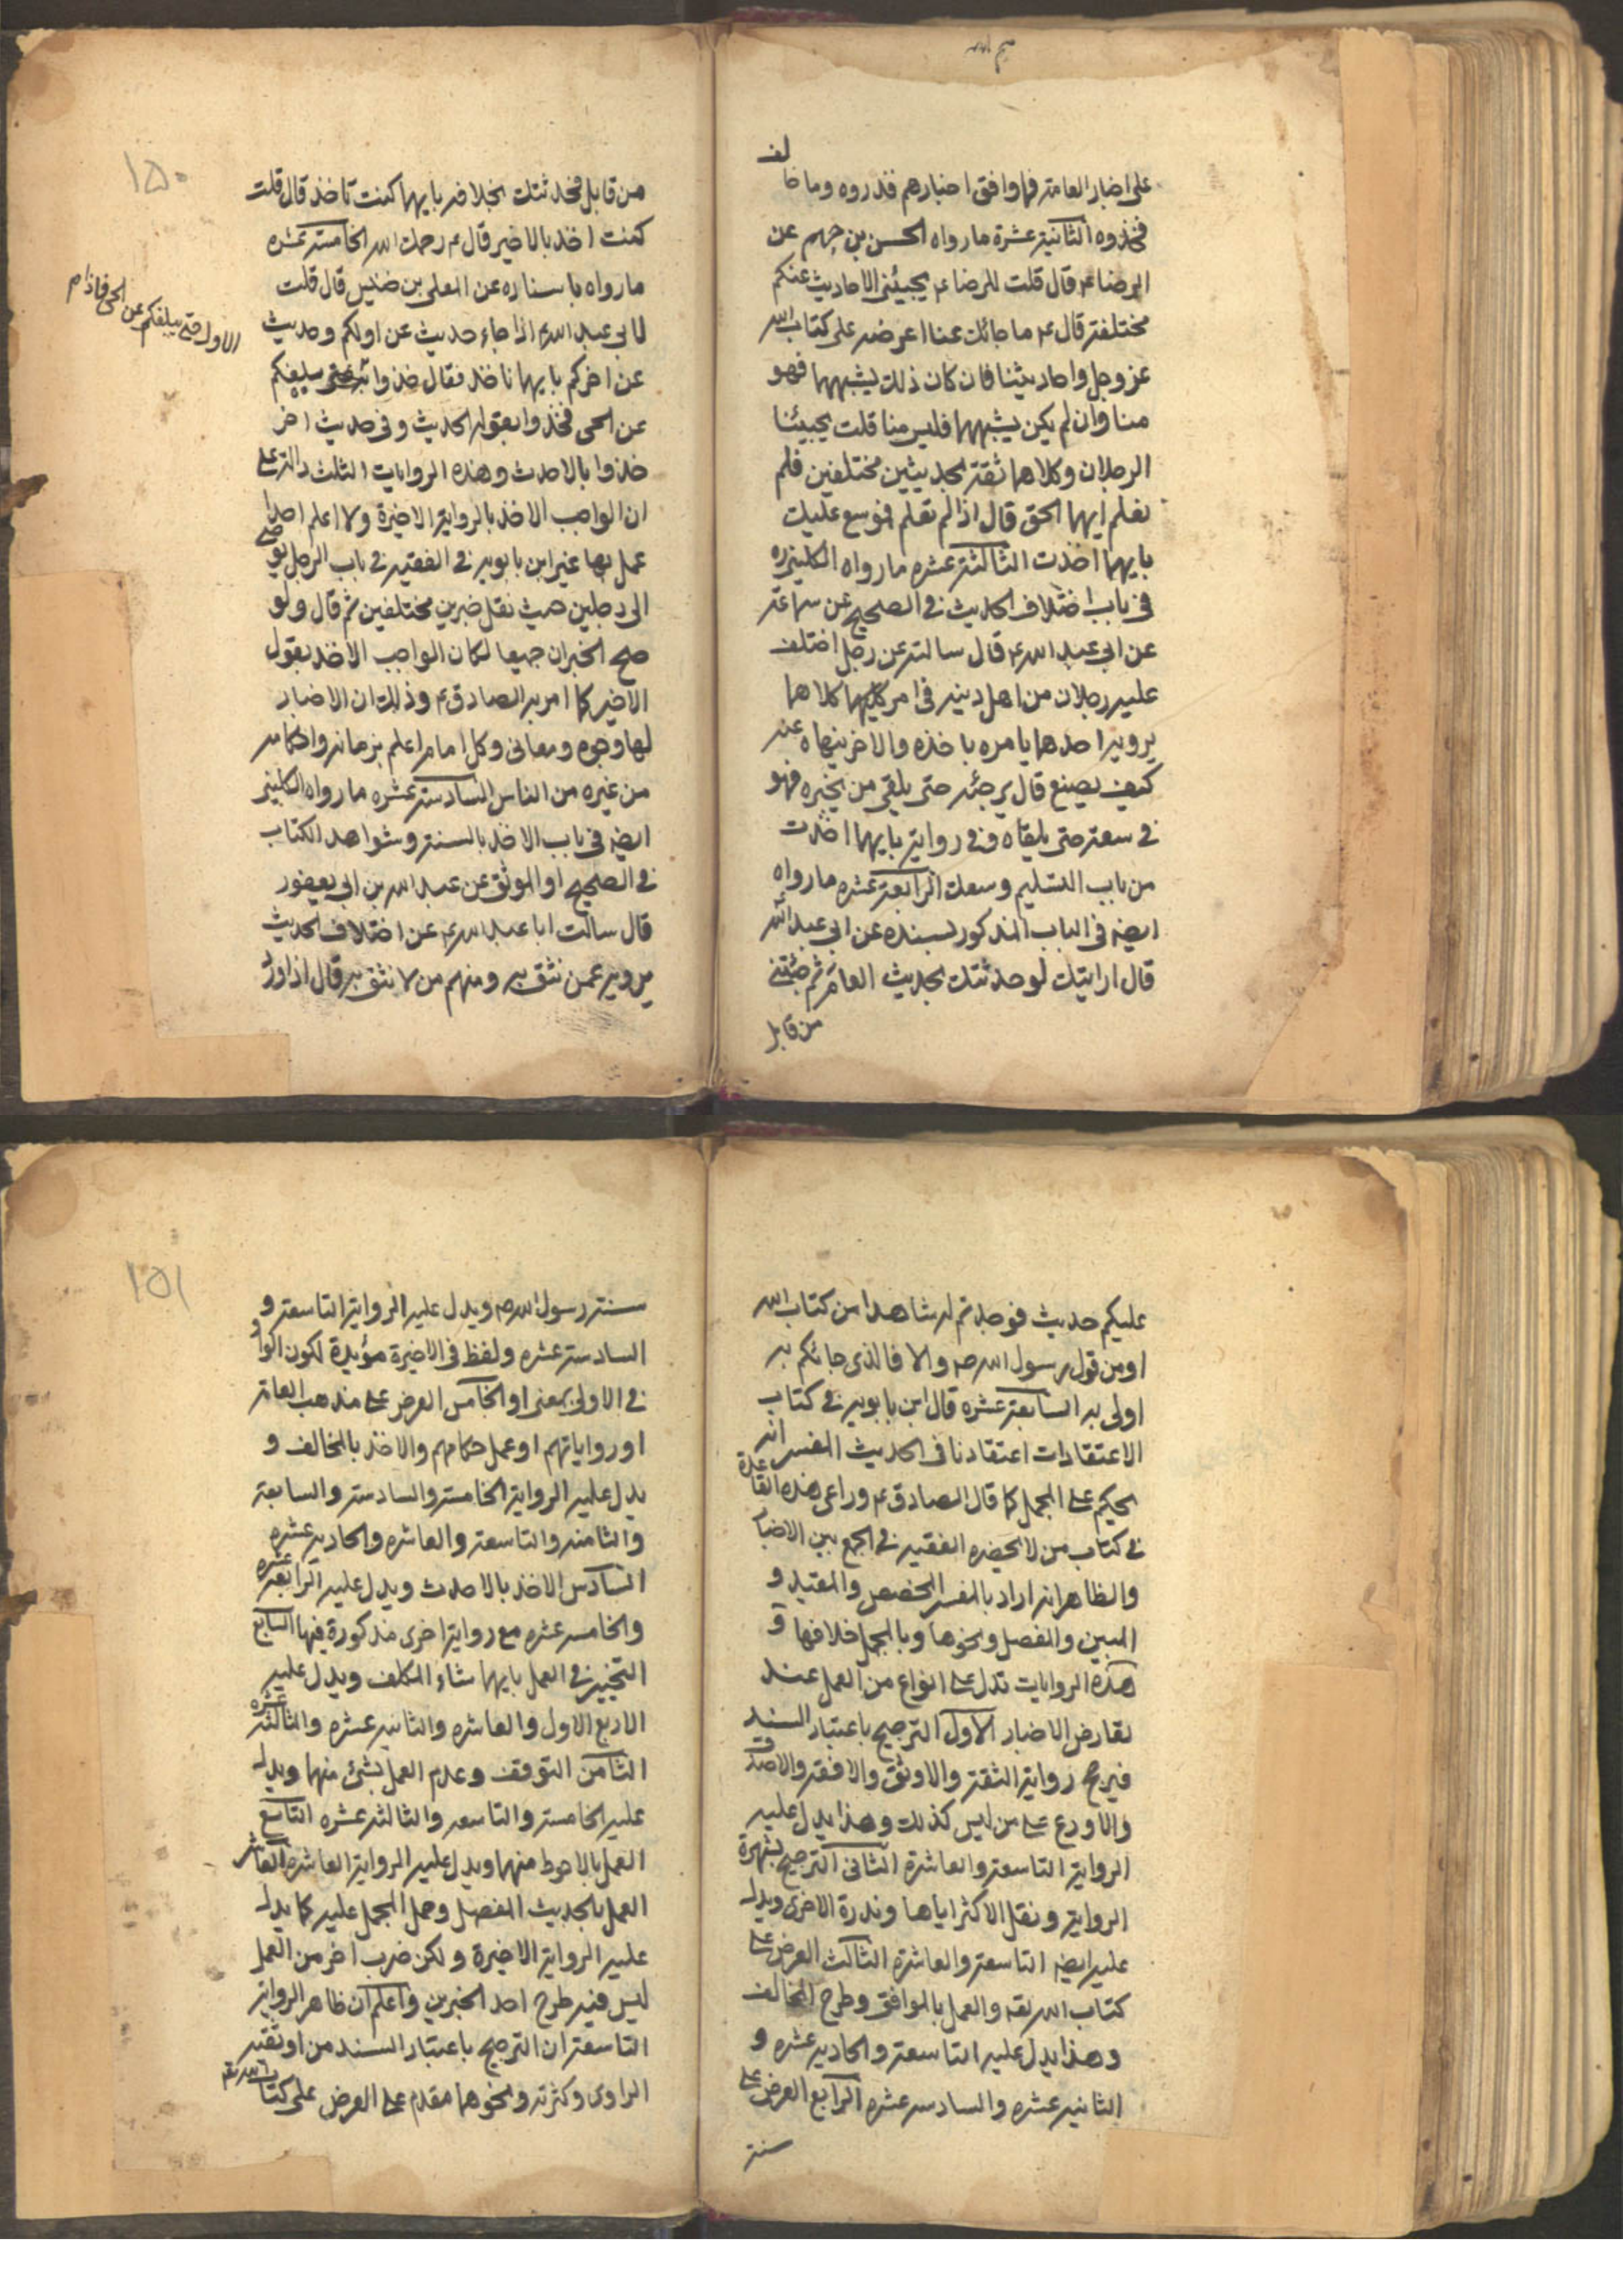 على اخبار العامة فما وافق اخبارهم فذروه وما خالف
فخذوه الثانية عشرة ما رواه الحسن بن جهم عن
الرضا ع قال قلت للرضا ع يجيئني الاحاديث عنكم
مختلفة قال ع ما جائك عنا اعرضه على كتاب الله
عز وجل واحاديثنا فان كان ذلك يشبههما فهو
منا وان لم يكن يشبههما فليس منا قلت يجيئنا
الرجلان وكلاهما ثقة بحديثين مختلفين فلم
نعلم ايهما الحق قال اذا لم تعلم فوسع عليك
بايهما اخذت الثالثة عشره ما رواه الكليني ره
في باب اختلاف الحديث في الصحيح عن سماعة
عن ابي عبد الله ع قال سالته عن رجل اختلف
عليه رجلان من اهل دينه في امر كليهما كلاهما
يرويه احدهما يامره باخذه والاخر ينهاه عنه
كيف يصنع قال يرجئه حتى يلقى من يخبره فهو
في سعة حتى يلقاه وفي رواية بايهما اخذت
من باب التسليم وسعك الرابعة عشره ما رواه
ايضه في الباب المذكور بسنده عن ابي عبد الله
قال ارايتك لو حدثتك بحديث العام ثم جئتني
من قابل
١٥٠
من قابل فحدثتك بخلافه بايهما كنت تاخذ قال قلت
كنت اخذ بالاخير قال ع رحمك الله الخامسة عشره
ما رواه باسناده عن المعلى بن خنيس قال قلت
لابي عبد الله ع اذا جاء حديث عن اولكم وحديث
عن اخركم بايهما ناخذ فقال خذوا به حتى يبلغكم
عن الحي فخذوا بقوله الحديث وفي حديث اخر
خذوا بالاحدث وهذه الروايات الثلث دالة على
ان الواجب الاخذ بالرواية الاخيرة ولا اعلم احدا
عمل بها غير ابن بابويه في الفقيه في باب الرجل يوصي
الى رجلين حيث نقل خبرين مختلفين ثم قال ولو
صح الخبران جميعا لكان الواجب الاخذ بقول
الاخير كما امر به الصادق ع وذلك ان الاخبار
لها وجوه ومعاني وكل امام اعلم بزمانه واحكامه
من غيره من الناس السادسة عشره ما رواه الكليني
ايضه في باب الاخذ بالسنة وشواهد الكتاب
في الصحيح او الموثق عن عبد الله بن ابي يعفور
قال سالت ابا عبد الله ع عن اختلاف الحديث
يرويه عمن نثق به ومنهم من لا نثق به قال اذا ورد
الاول حتى يبلغكم عن الحي فاذا
عليكم حديث فوجدتم له شاهدا من كتاب الله
او من قول رسول الله ص والا فالذي جائكم به
اولى به السابعة عشره قال ابن بابويه في كتاب
الاعتقادات اعتقادنا في الحديث المفسر انه
يحكم على المجمل كما قال الصادق ع وراعى هذه القاعدة
في كتاب من لا يحضره الفقيه في الجمع بين الاخبار
والظاهر انه اراد بالمفسر المخصص والمقيد و
المبين والمفصل ونحوها وبالمجمل خلافها و
هذه الروايات تدل على انواع من العمل عند
تعارض الاخبار الاول الترجيح باعتبار السند
فيرجح رواية الثقة والاوثق والافقه والاصدق
والاورع على من ليس كذلك وهذا يدل عليه
الرواية التاسعة والعاشرة الثاني الترجيح بشهرة
الرواية ونقل الاكثر اياها وندرة الاخرى ويدل
عليه ايضه التاسعة والعاشرة الثالث العرض على
كتاب الله تعه والعمل بالموافق وطرح المخالف
وهذا يدل عليه التاسعة والحادية عشره و
الثانية عشره والسادسة عشره الرابع العرض على
سنة
١٥١
سنة رسول الله ص ويدل عليه الرواية التاسعة و
السادسة عشره ولفظ في الاخيرة مؤيدة لكون الواو
في الاولى بمعنى او الخامس العرض على مذهب العامة
او رواياتهم او عمل حكامهم والاخذ بالمخالف و
يدل عليه الرواية الخامسة والسادسة والسابعة
والثامنة والتاسعة والعاشره والحادية عشره
السادس الاخذ بالاحدث ويدل عليه الرابعة عشره
والخامسة عشره مع رواية اخرى مذكورة فيها السابع
التخيير في العمل بايهما شاء المكلف ويدل عليه
الاربع الاول والعاشره والثانية عشره والثالثة عشره
الثامن التوقف وعدم العمل بشئ منهما ويدل
عليه الخامسة والتاسعه والثالثة عشره التاسع
العمل بالاحوط منهما ويدل عليه الرواية العاشره العاشر
العمل بالحديث المفصل وحمل المجمل عليه كما يدل
عليه الرواية الاخيرة ولكن ضرب اخر من العمل
ليس فيه طرح احد الخبرين واعلم ان ظاهر الرواية
التاسعة ان الترجيح باعتبار السند من اوثقية
الراوي وكثرته ونحوهما مقدم على العرض على كتاب الله تعه